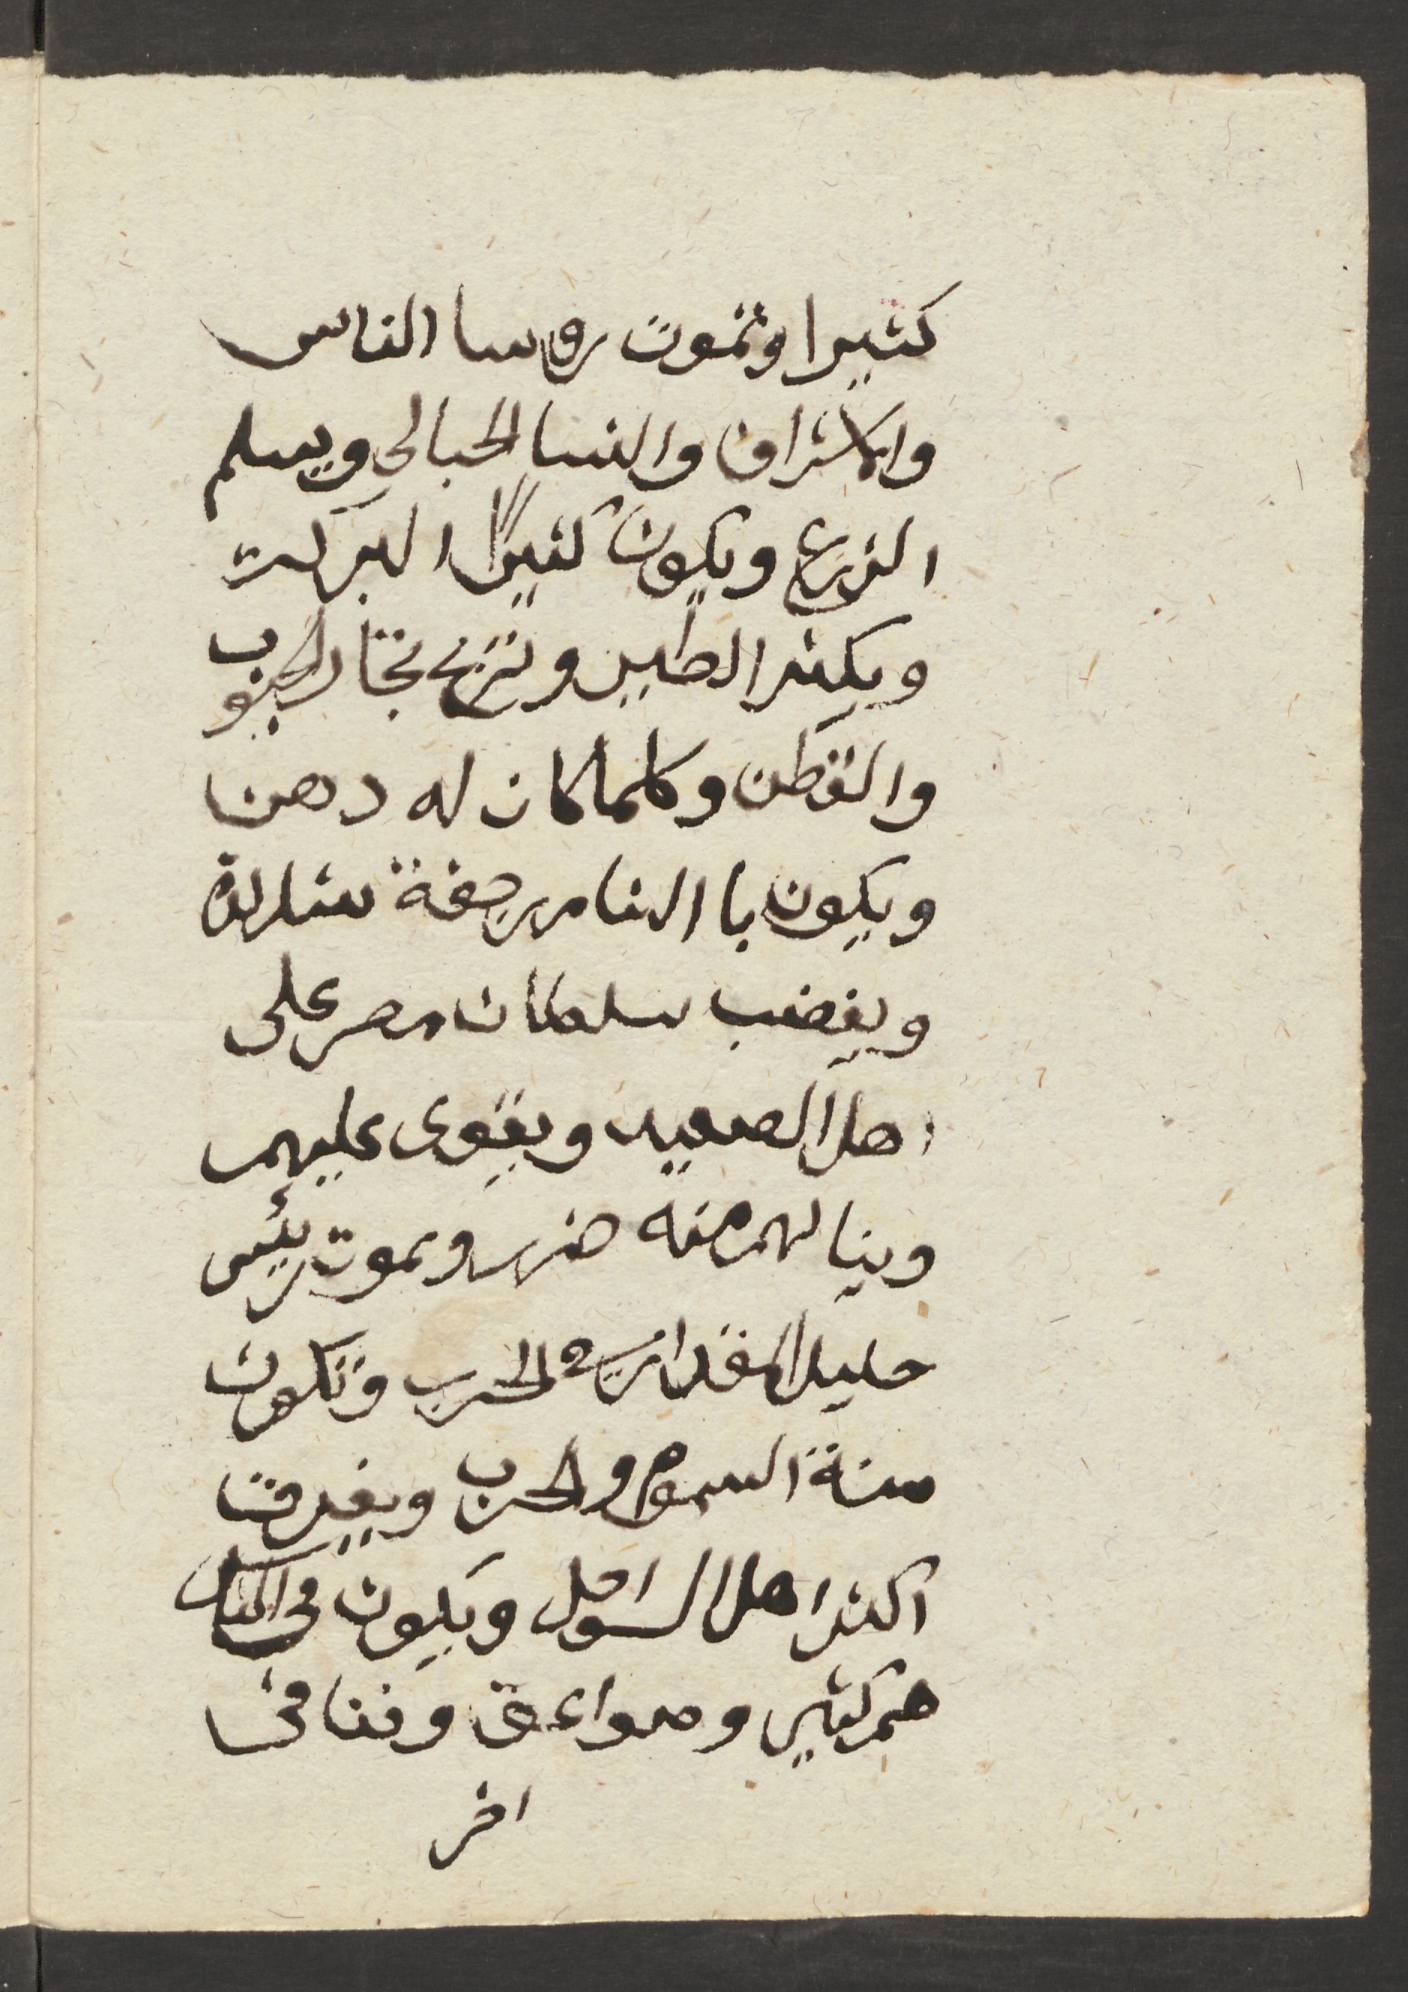 كثيرا وتموت روسا الناس
والاشراف والنسا الحبالي ويسلم
الزرع ويكون كثيرا البركت
ويكثر الطير وتربح تجار الحبوب
والقطن وكلما كان له دهن
ويكون با الناس رجفة شديدة
ويغضب سلطان مصر على
اهل الصعيد ويقوى عليهم
وينالهم منه ضرر ويموت رئيس
جليل المقدار في الحرب وتكون
سنة السموم والحرب ويغرق
اكثر اهل السواحل ويكون في الناس
هم كثير وصواعق وفنا في
اخر